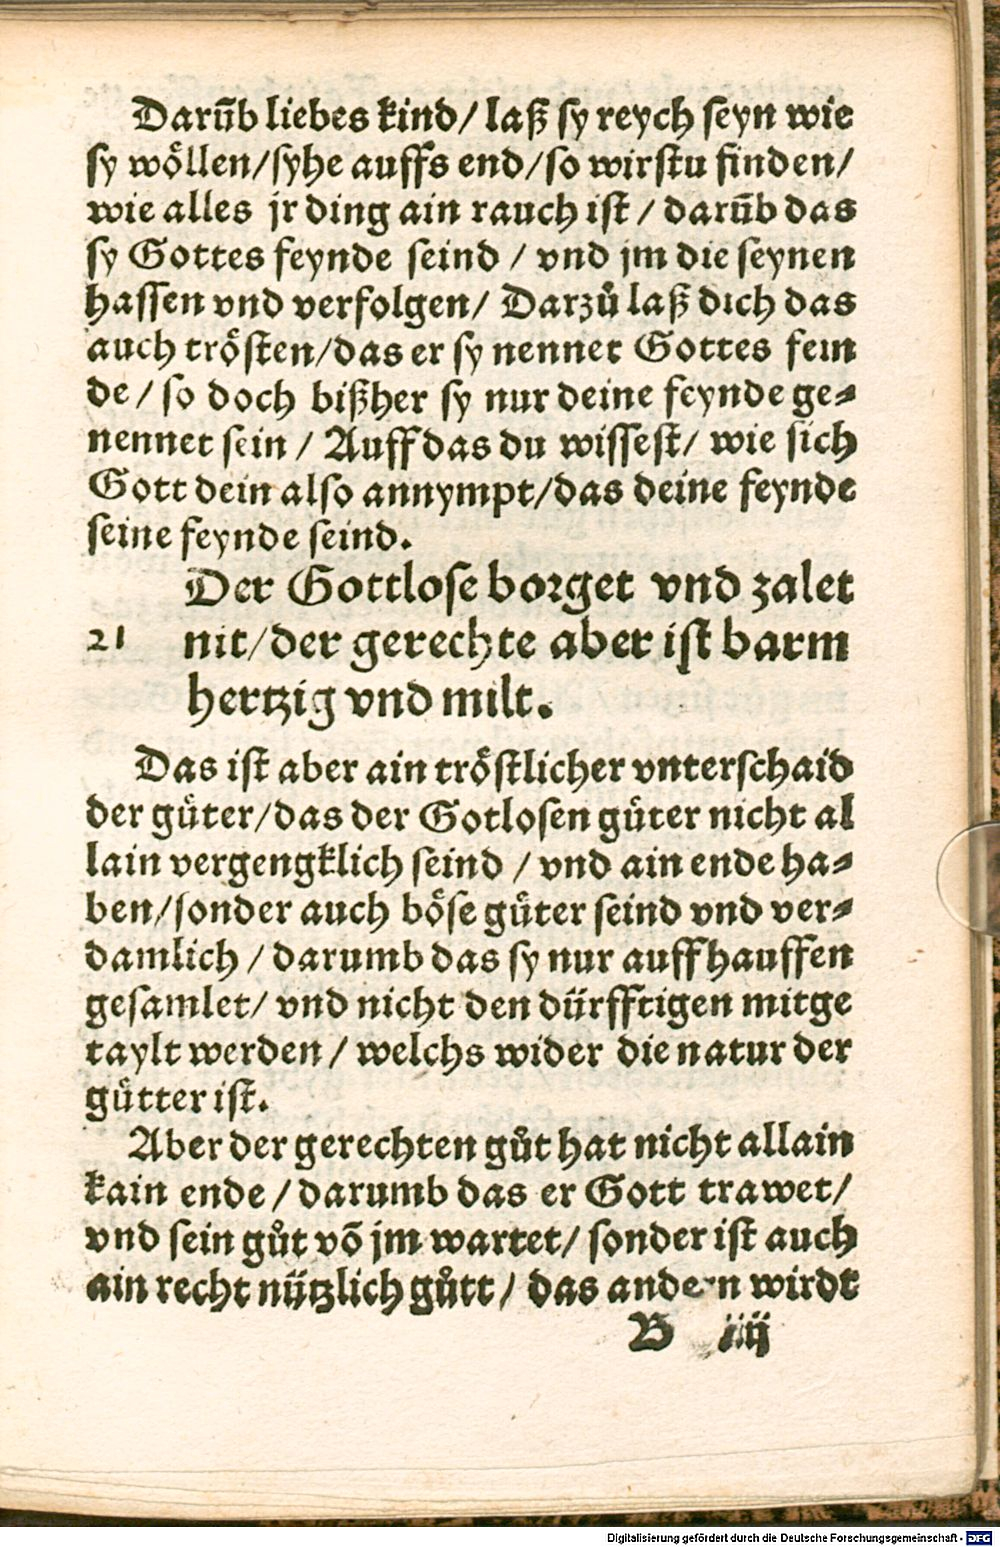 Darũb liebes kind/ laß sy reych seyn wie
sy wöllen/syhe auffs end/so wirstu finden/
wie alles jr ding ain rauch ist / darũb das
sy Gottes feynde seind / vnd jm die seynen
hassen vnd verfolgen/ Darzů laß dich das
auch trösten/das er sy nennet Gottes fein
de / so doch bißher sy nur deine feynde ge-
nennet sein / Auff das du wissest/ wie sich
Gott dein also annympt/das deine feynde
seine feynde seind.
Der Gottlose borget vnd zalet
21 nit/der gerechte aber ist barm
hertzig vnd milt.
Das ist aber ain tröstlicher vnterschaid
der güter/das der Gotlosen güter nicht al
lain vergengklich seind / vnd ain ende ha-
ben/sonder auch böse güter seind vnd ver-
damlich / darumb das sy nur auff hauffen
gesamlet/ vnd nicht den dürfftigen mitge
taylt werden / welchs wider die natur der
gütter ist.
Aber der gerechten gůt hat nicht allain
kain ende / darumb das er Gott trawet/
vnd sein gůt võ jm wartet/ sonder ist auch
ain recht nützlich gůtt / das andern wirdt
B iiij
Digitalisierung gefördert durch die Deutsche Forschungsgemeinschaft - DFG